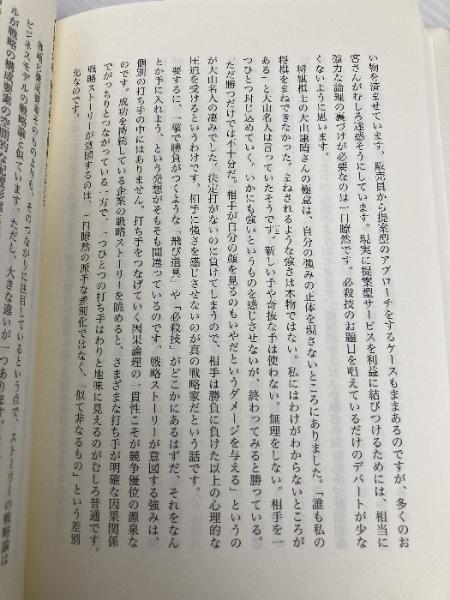 い物を済ませています。販売員から提案型のアプローチをするケースもままあるのですが、多くのお
客さんがむしろ迷惑そうにしています。現実に提案型サービスを利益に結びつけるためには、相当に
強力な論理の裏づけが必要なのは一目瞭然です。必殺技のお題目を唱えているだけのデパートが少な
くないように思います。
将棋棋士の大山康晴さんの極意は、自分の強みの正体を現さないところにありました。「誰も私の
将棋をまねできなかった。まねされるような強さは本物ではない。私にはわけがわからないところが
ある」と大山名人は言っていたそうです。新しい手や奇抜な手は使わない。無理をしない。相手を一
つひとつ封じ込めていく。いかにも強いというものを感じさせないが、終わってみると勝っている。
「ただ勝つだけでは不十分だ。相手が自分の顔を見るのもいやだというダメージを与える」というの
が大山名人の凄みでした。決定打がないのに負けてしまうので、相手は勝負に負けた以上の心理的な
圧迫を受けるというわけです。相手に強さを感じさせないのが真の戦略家だという話です。
要するに、一撃で勝負がつくような「飛び道具」や「必殺技」がどこかにあるはずだ、それをなん
とか手に入れよう、という発想がそもそも間違っているのです。戦略ストーリーが意図する強みは、
個別の打ち手の中にはありません。打ち手をつなげていく因果論理の一貫性こそが競争優位の源泉な
のです。成功を持続している企業の戦略ストーリーを眺めると、さまざまな打ち手が明確な因果関係
でがっちりとつながっている一方で、一つひとつの打ち手はわりと地味に見えるのがむしろ普通です。
戦略ストーリーが意図するのは、一目瞭然の派手な差別化ではなく、「似て非なるもの」という差別
化なのです。
そのつながりに注目しているという点で、ストーリーの戦略論は
ビジネスモデルの戦略論と似ています。ただし、大きな違いが一つあります。
ルが戦略の構成要素の空間的な配置